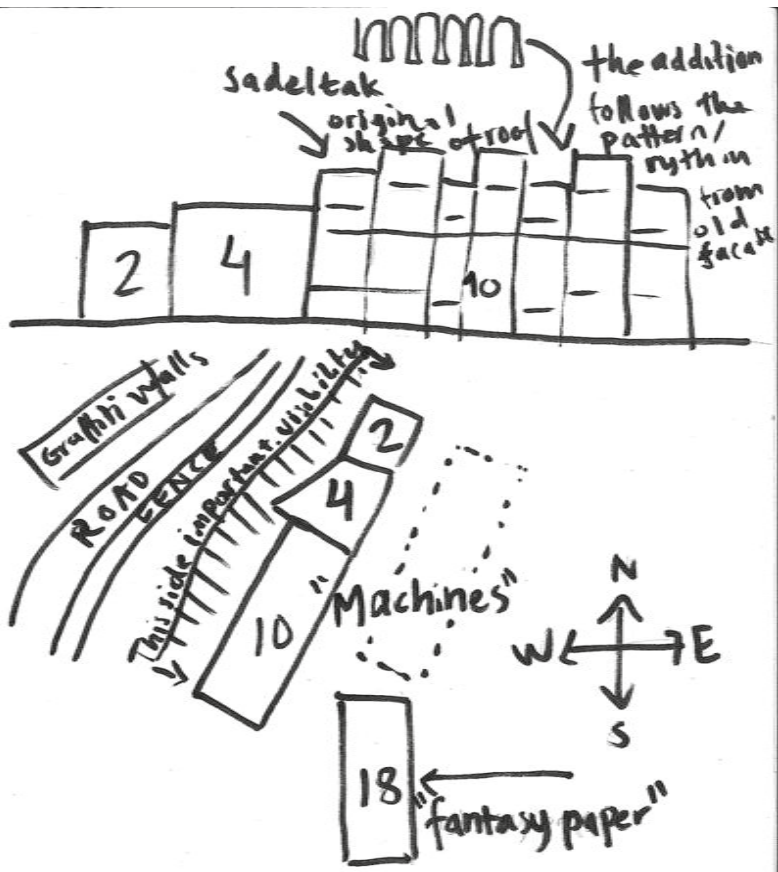 Sadeltak
original
shape of roof
the addition
follows the
pattern/
rythm
from
old
facade
2
4
10
Graffiti walls
ROAD
FENCE
This side important. visibility
2
4
10
"Machines"
N
W E
S
18
"fantasy paper"